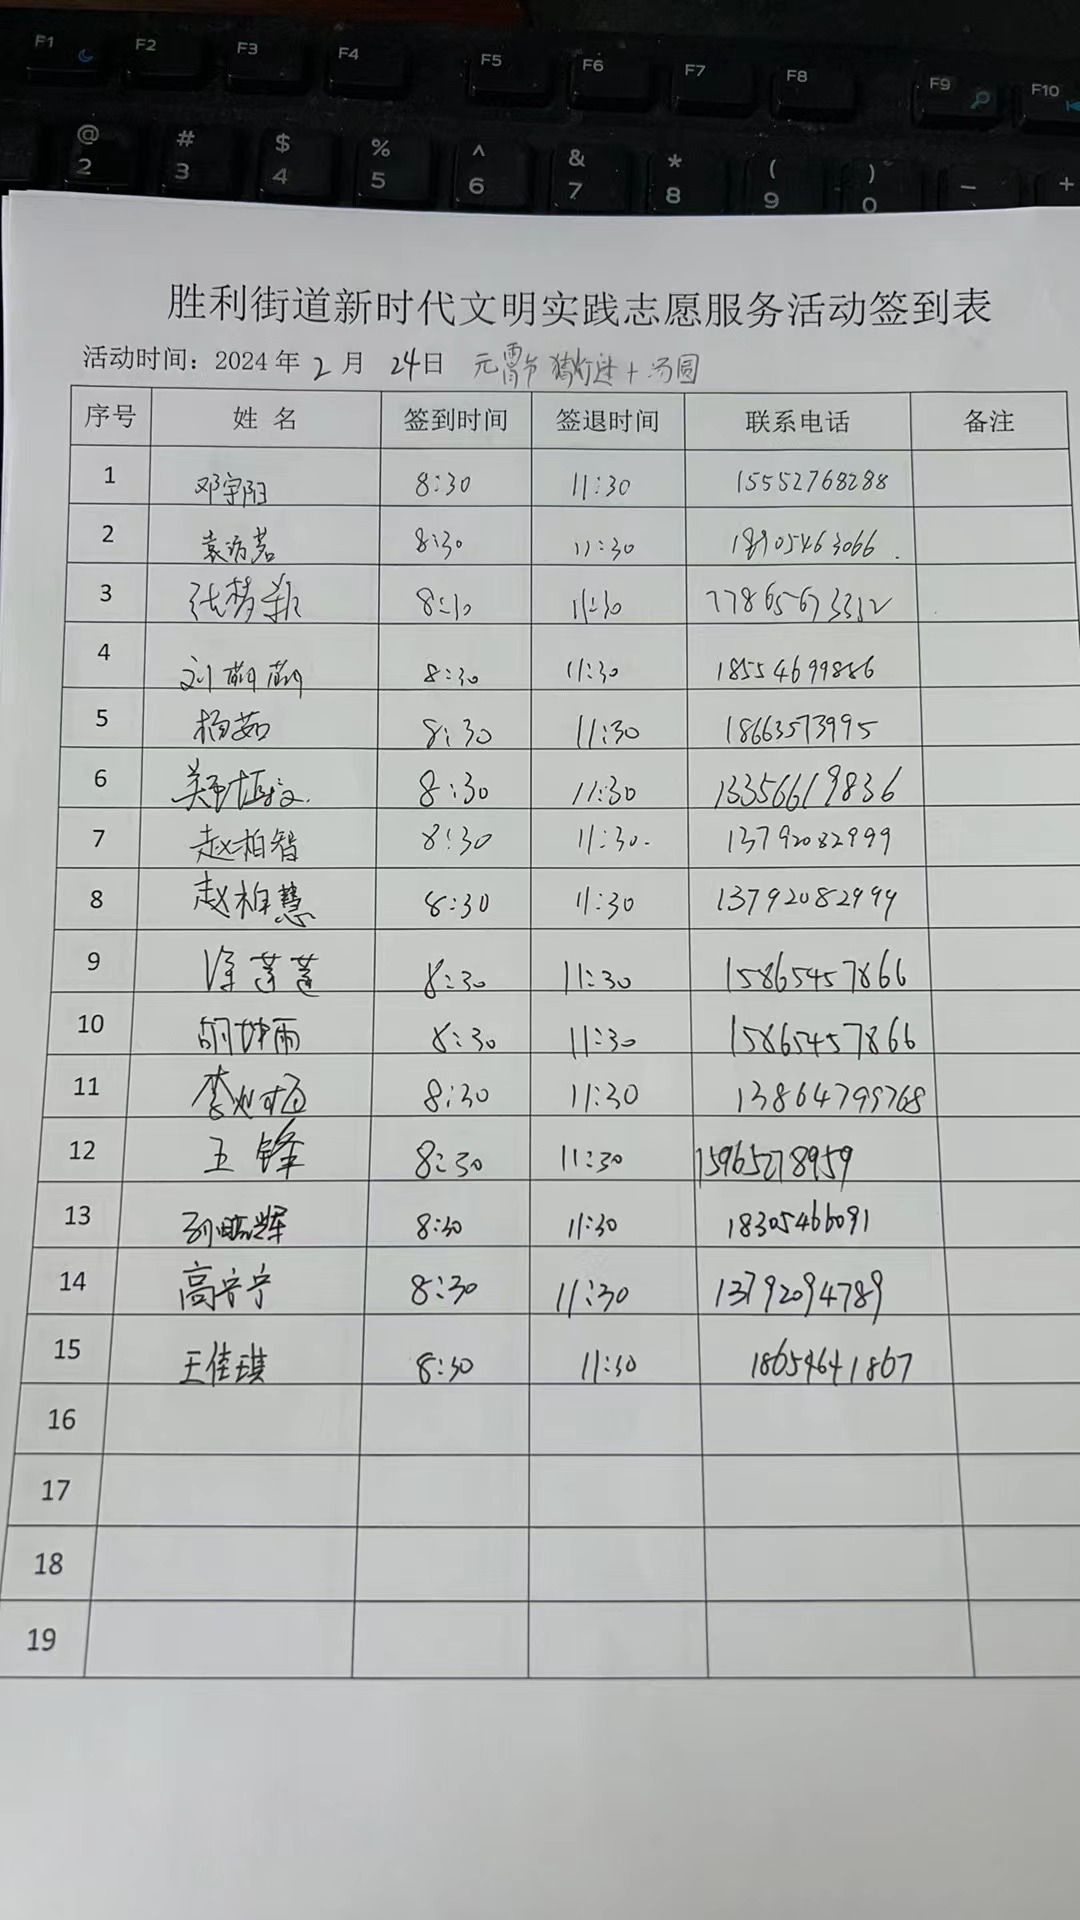 F1 F2 F3 F4 F5 F6 F7 F8 F9 F10
@ # $ % ^ & * ( ) — +
2 3 4 5 6 7 8 9 0
胜利街道新时代文明实践志愿服务活动签到表
活动时间：2024年2月24日 元宵节猜灯谜+汤圆
序号 姓名 签到时间 签退时间 联系电话 备注
1 邓宇阳 8:30 11:30 15552768288
2 8:30 11:30 18905463066
3 张梦 8:30 11:30 17865673312
4 刘萌萌 8:30 11:30 18554699886
5 杨茹 8:30 11:30 18663573995
6 8:30 11:30 13356619836
7 赵柏智 8:30 11:30 13792082999
8 赵柏慧 8:30 11:30 13792082999
9 徐莲莲 8:30 11:30 15865457866
10 胡坤雨 8:30 11:30 15865457866
11 李 8:30 11:30 13864799768
12 王锋 8:30 11:30 15965278959
13 8:30 11:30 18305466091
14 高宁宁 8:30 11:30 13792094789
15 王佳琪 8:30 11:30 18654641867
16
17
18
19